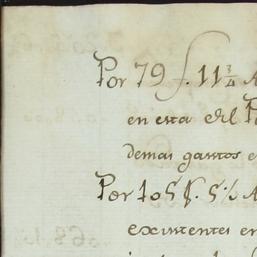 Por 79 f. 11 3/4
en esta del
demas gastos e
Por 105 f. 5 1/2
existentes en